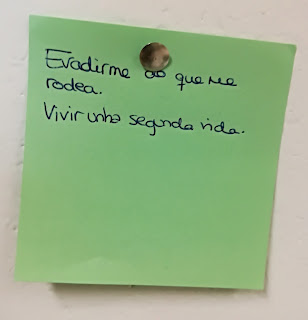 Evadirme do que me
rodea.
Vivir unha segunda vida.